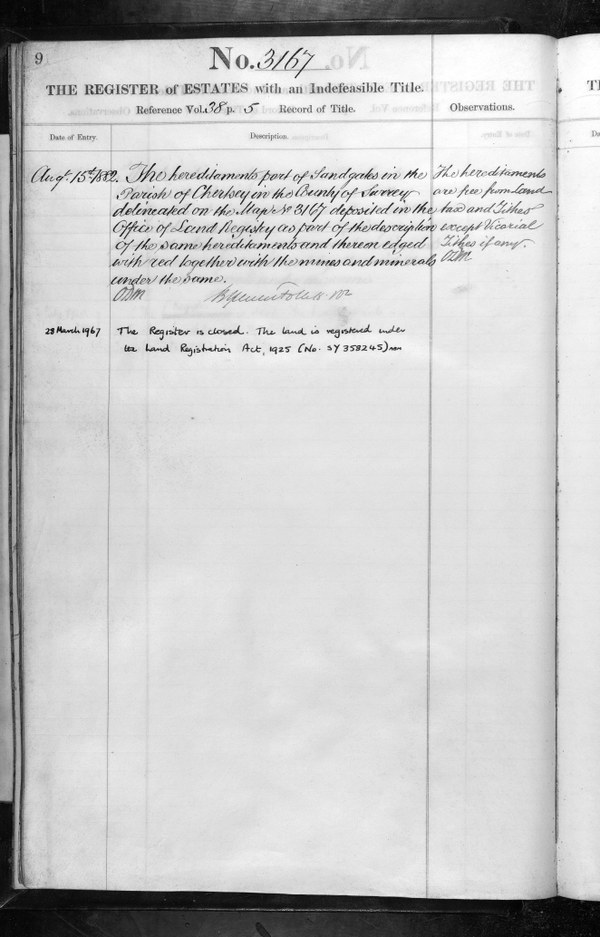 9
No. 3167
THE REGISTER of ESTATES with an Indefeasible Title.
Reference Vol. 38 p. 5 Record of Title.
Observations.
Date of Entry.
Description.
Augt. 15th 1882. The hereditaments part of Sandgates in the
Parish of Chertsey in the County of Surrey
delineated on the Map No 3167 deposited in the
Office of Land Registry as part of the description
of the same hereditaments and thereon edged
with red together with the mines and minerals
under the same.
The hereditaments
are free from Land
tax and Tithes
except Vicarial
Tithes if any.
28 March 1967 The Register is closed. The land is registered under
the Land Registration Act, 1925 (No. SY 358245)